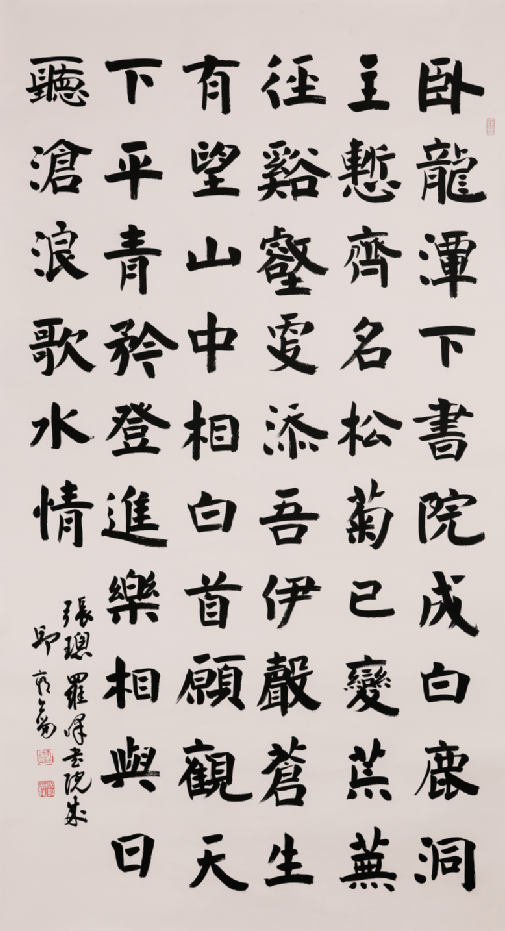 卧龍潭下書院成白鹿洞
主慙齊名松菊已變荒蕪
徑谿壑更添吾伊聲蒼生
有望山中相白首願觀天
下平青矜登進樂相與日
聽滄浪歌水情
張璁羅峰書院成